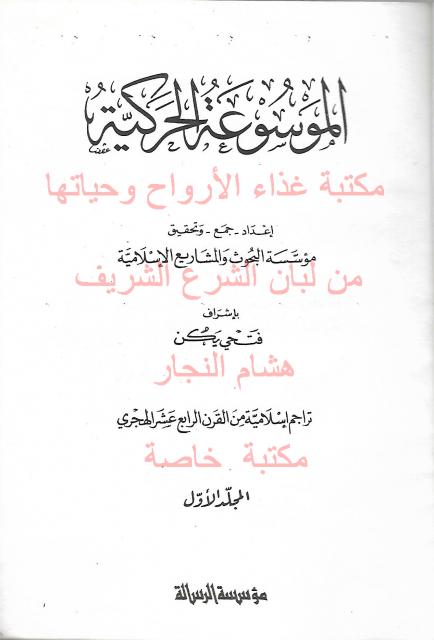 الموسوعة الحركية
مكتبة غذاء الأرواح وحياتها
إعداد - جمع - وتحقيق
مؤسسة البحوث والمشاريع الإسلامية
من لبان الشرع الشريف
بإشراف
فتحي يكن
هشام النجار
تراجم إسلامية من القرن الرابع عشر الهجري
مكتبة خاصة
المجلد الأول
مؤسسة الرسالة